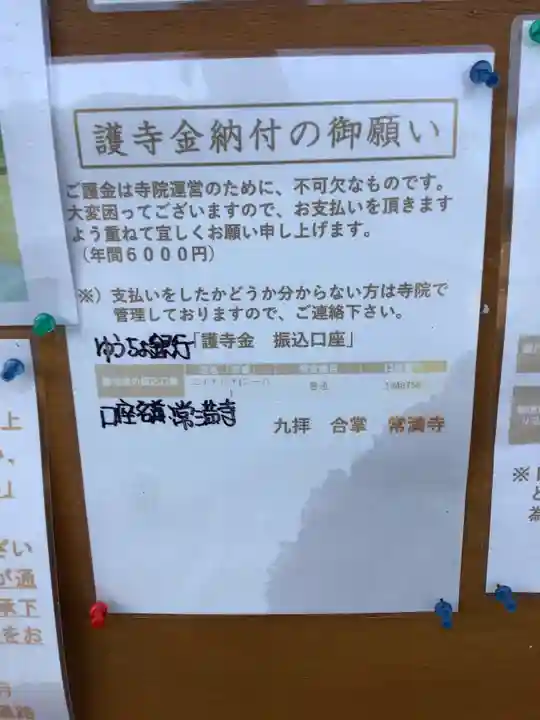 護寺金納付の御願い
ご護金は寺院運営のために、不可欠なものです。
大変困ってございますので、お支払いを頂きます
よう重ねて宜しくお願い申し上げます。
（年間６０００円）
※）支払いをしたかどうか分からない方は寺院で
管理しておりますので、ご連絡下さい。
ゆうちょ銀行「護寺金　振込口座」
普通
口座名義 常満寺
九拝　合掌　常満寺
上
、
」
ざい
が通
承下
をお
※
と
為